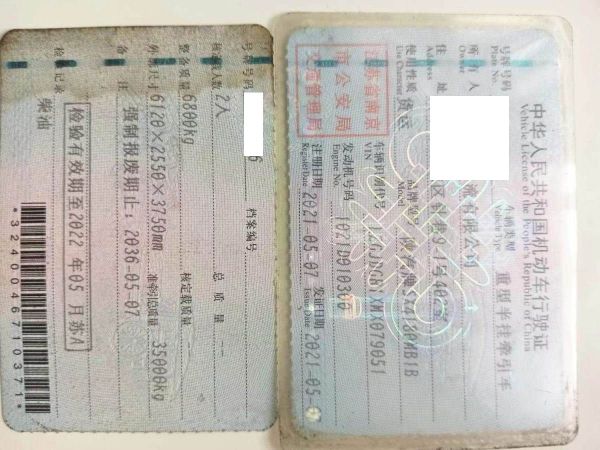 中华人民共和国机动车行驶证
Vehicle License of the People's Republic of China
号牌号码
Plate No.
车辆类型
Vehicle Type
重型半挂牵引车
所有人
Owner
有限公司
住址
Address
使用性质
Use Character
货运
品牌型号
Model
车辆识别代号
VIN
发动机号码
Engine No.
1021D010300
注册日期
Register Date
2021-05-07
发证日期
Issue Date
2021-05-
江苏省南京
市公安局
交通管理局
号牌号码
6
档案编号
核定载人数
2人
总质量
--
整备质量
6800kg
核定载质量
--
外廓尺寸
6120×2550×3750mm
准牵引总质量
35000kg
备注
强制报废期止:2036-05-07
检验记录
检验有效期至2022年05月苏A
柴油
*3240046710371*